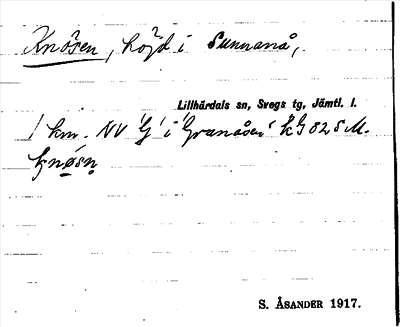 Knösen, höjd i Sunnanå,
Lillhärdals sn, Svegs tg, Jämtl. l.
1 km. NV 'G' i 'Granåsen' kg 82 S M.
knøsn̥
S. ÅSANDER 1917.